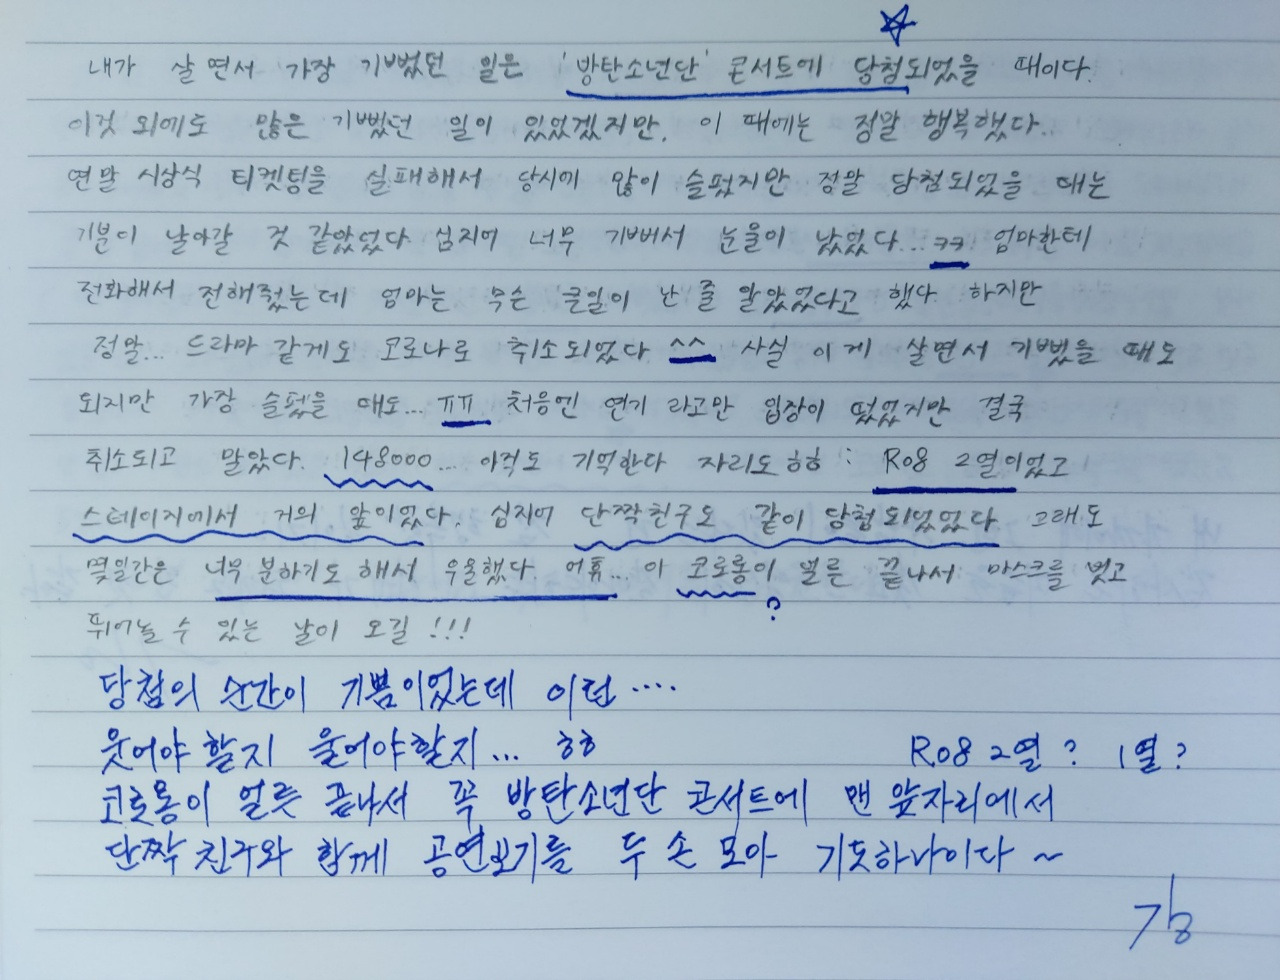 내가 살면서 가장 기뻤던 일은 '방탄소년단' 콘서트에 당첨되었을 때이다.
이것 외에도 많은 기뻤던 일이 있었겠지만, 이 때에는 정말 행복했다..
연말 시상식 티켓팅을 실패해서 당시에 많이 슬펐지만 정말 당첨되었을 때는
기분이 날아갈 것 같았었다 심지어 너무 기뻐서 눈물이 났었다...ㅋㅋ 엄마한테
전화해서 전해줬는데 엄마는 무슨 큰일이 난 줄 알았었다고 했다 하지만
정말... 드라마 같게도 코로나로 취소되었다 ^^ 사실 이게 살면서 기뻤을 때도
되지만 가장 슬펐을 때도... ㅠㅠ 처음엔 연기 라고만 입장이 떴었지만 결국
취소되고 말았다. 148000... 아직도 기억한다 자리도 ㅎㅎ : R08 2열이었고
스테이지에서 거의 앞이었다. 심지어 단짝친구도 같이 당첨되었었다 그래도
몇일간은 너무 분하기도 해서 우울했다 어휴... 아 코로롱이 얼른 끝나서 마스크를 벗고
?
뛰어놀 수 있는 날이 오길 !!!
당첨의 순간이 기쁨이었는데 이런 ....
웃어야 할지 울어야할지... ㅎㅎ R08 2열? 1열?
코로롱이 얼릇 끝나서 꼭 방탄소년단 콘서트에 맨 앞자리에서
단짝 친구와 함께 공연보기를 두 손 모아 기도하나이다 ~